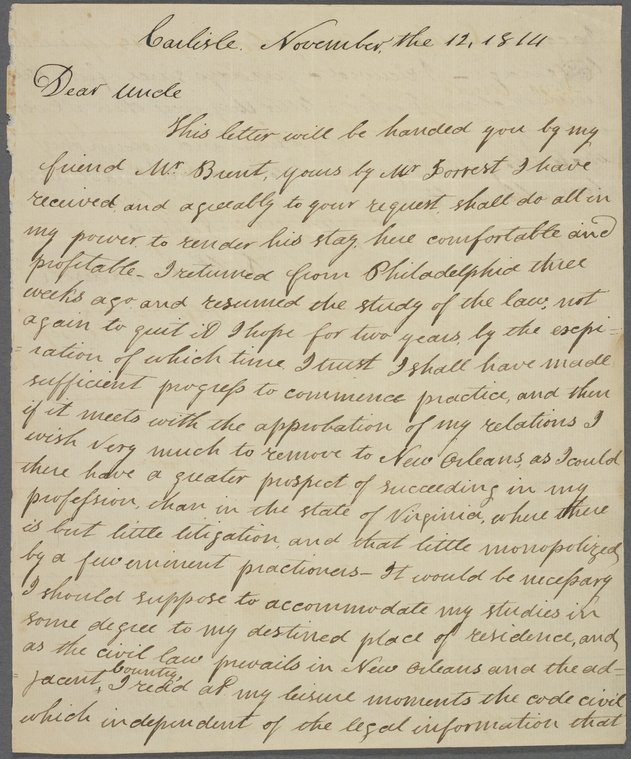 Carlisle. November, the 12, 1814
Dear Uncle
This letter will be handed you by my
friend Mr. Brent, yours by Mr Forrest I have
received and agreeably to your request, shall do all in
my power, to render his stay here comfortable and
profitable – I returned from Philadelphia three
weeks ago and resumed the study of the law, not
again to quit it I hope for two years, by the expi-
=ration of which time I trust I shall have made
sufficient progress to commence practice, and then
if it meets with the approbation of my relations I
wish very much to remove to New Orleans, as I could
there have a greater prospect of succeeding in my
profession, than in the state of Virginia, where there
is but little litigation, and that little monopolized
by a few eminent practioners – It would be necessary
I should suppose to accommodate my studies in
some degree to my destined place of residence, and
as the civil law prevails in New Orleans and the ad-
=jacent country, I redd at my leisure moments the code civil
which independent of the legal information that